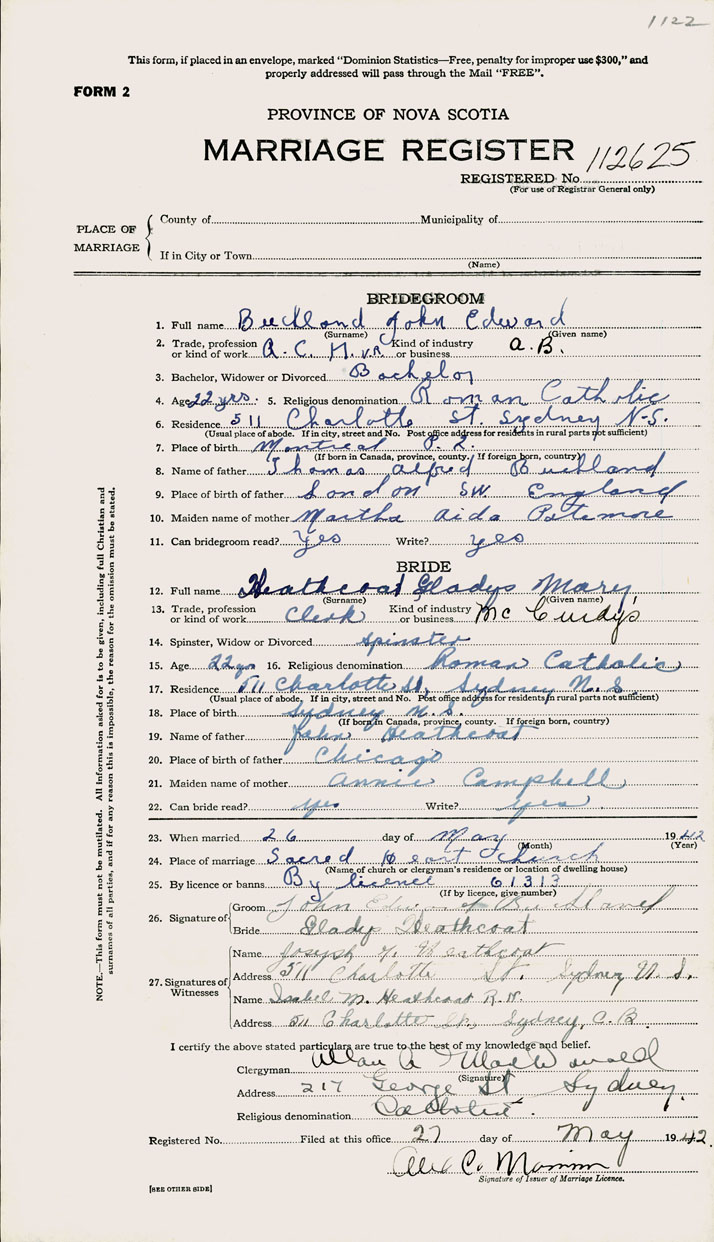 1122
This form, if placed in an envelope, marked "Dominion Statistics—Free, penalty for improper use $300," and
properly addressed will pass through the Mail "FREE".
FORM 2
PROVINCE OF NOVA SCOTIA
MARRIAGE REGISTER
REGISTERED No. 112625
(For use of Registrar General only)
PLACE OF MARRIAGE
County of Municipality of
If in City or Town
(Name)
BRIDEGROOM
1. Full name Buckland John Edward
(Surname) (Given name)
2. Trade, profession or kind of work A.C. H.V.R. Kind of industry or business A.B.
3. Bachelor, Widower or Divorced Bachelor
4. Age 22 yrs. 5. Religious denomination Roman Catholic
6. Residence 511 Charlotte St. Sydney N.S.
(Usual place of abode. If in city, street and No. Post office address for residents in rural parts not sufficient)
7. Place of birth Montreal
(If born in Canada, province, county. If foreign born, country)
8. Name of father Thomas Alfred Buckland
9. Place of birth of father London SW. England
10. Maiden name of mother Martha Aida
11. Can bridegroom read? Yes Write? yes
BRIDE
12. Full name Heathcoat Gladys Mary
(Surname) (Given name)
13. Trade, profession or kind of work Clerk Kind of industry or business Mc Curdy's
14. Spinster, Widow or Divorced Spinster
15. Age 22 yrs 16. Religious denomination Roman Catholic
17. Residence 511 Charlotte St, Sydney N.S
(Usual place of abode. If in city, street and No. Post office address for residents in rural parts not sufficient)
18. Place of birth Sydney N.S.
(If born in Canada, province, county. If foreign born, country)
19. Name of father John Heathcoat
20. Place of birth of father Chicago
21. Maiden name of mother Annie Campbell
22. Can bride read? yes Write? yes
23. When married 26 day of May 1942
(Month) (Year)
24. Place of marriage Sacred Heart Church
(Name of church or clergyman's residence or location of dwelling house)
25. By licence or banns By licence 61313
(If by licence, give number)
26. Signature of Groom John Edward Buckland
Bride Gladys Heathcoat
27. Signatures of Witnesses
Name Joseph Heathcoat
Address 511 Charlotte St. Sydney N.S.
Name Isabel M. Heathcoat R.N.
Address 511 Charlotte St., Sydney, C.B.
I certify the above stated particulars are true to the best of my knowledge and belief.
Clergyman Allan A MacDonald
(Signature)
Address 217 George St Sydney.
Religious denomination Catholic.
Registered No. Filed at this office 27 day of May 1942.
Signature of Issuer of Marriage Licence.
[SEE OTHER SIDE]
NOTE.—This form must not be mutilated. All information asked for is to be given, including full Christian and
surnames of all parties, and if for any reason this is impossible, the reason for the omission must be stated.